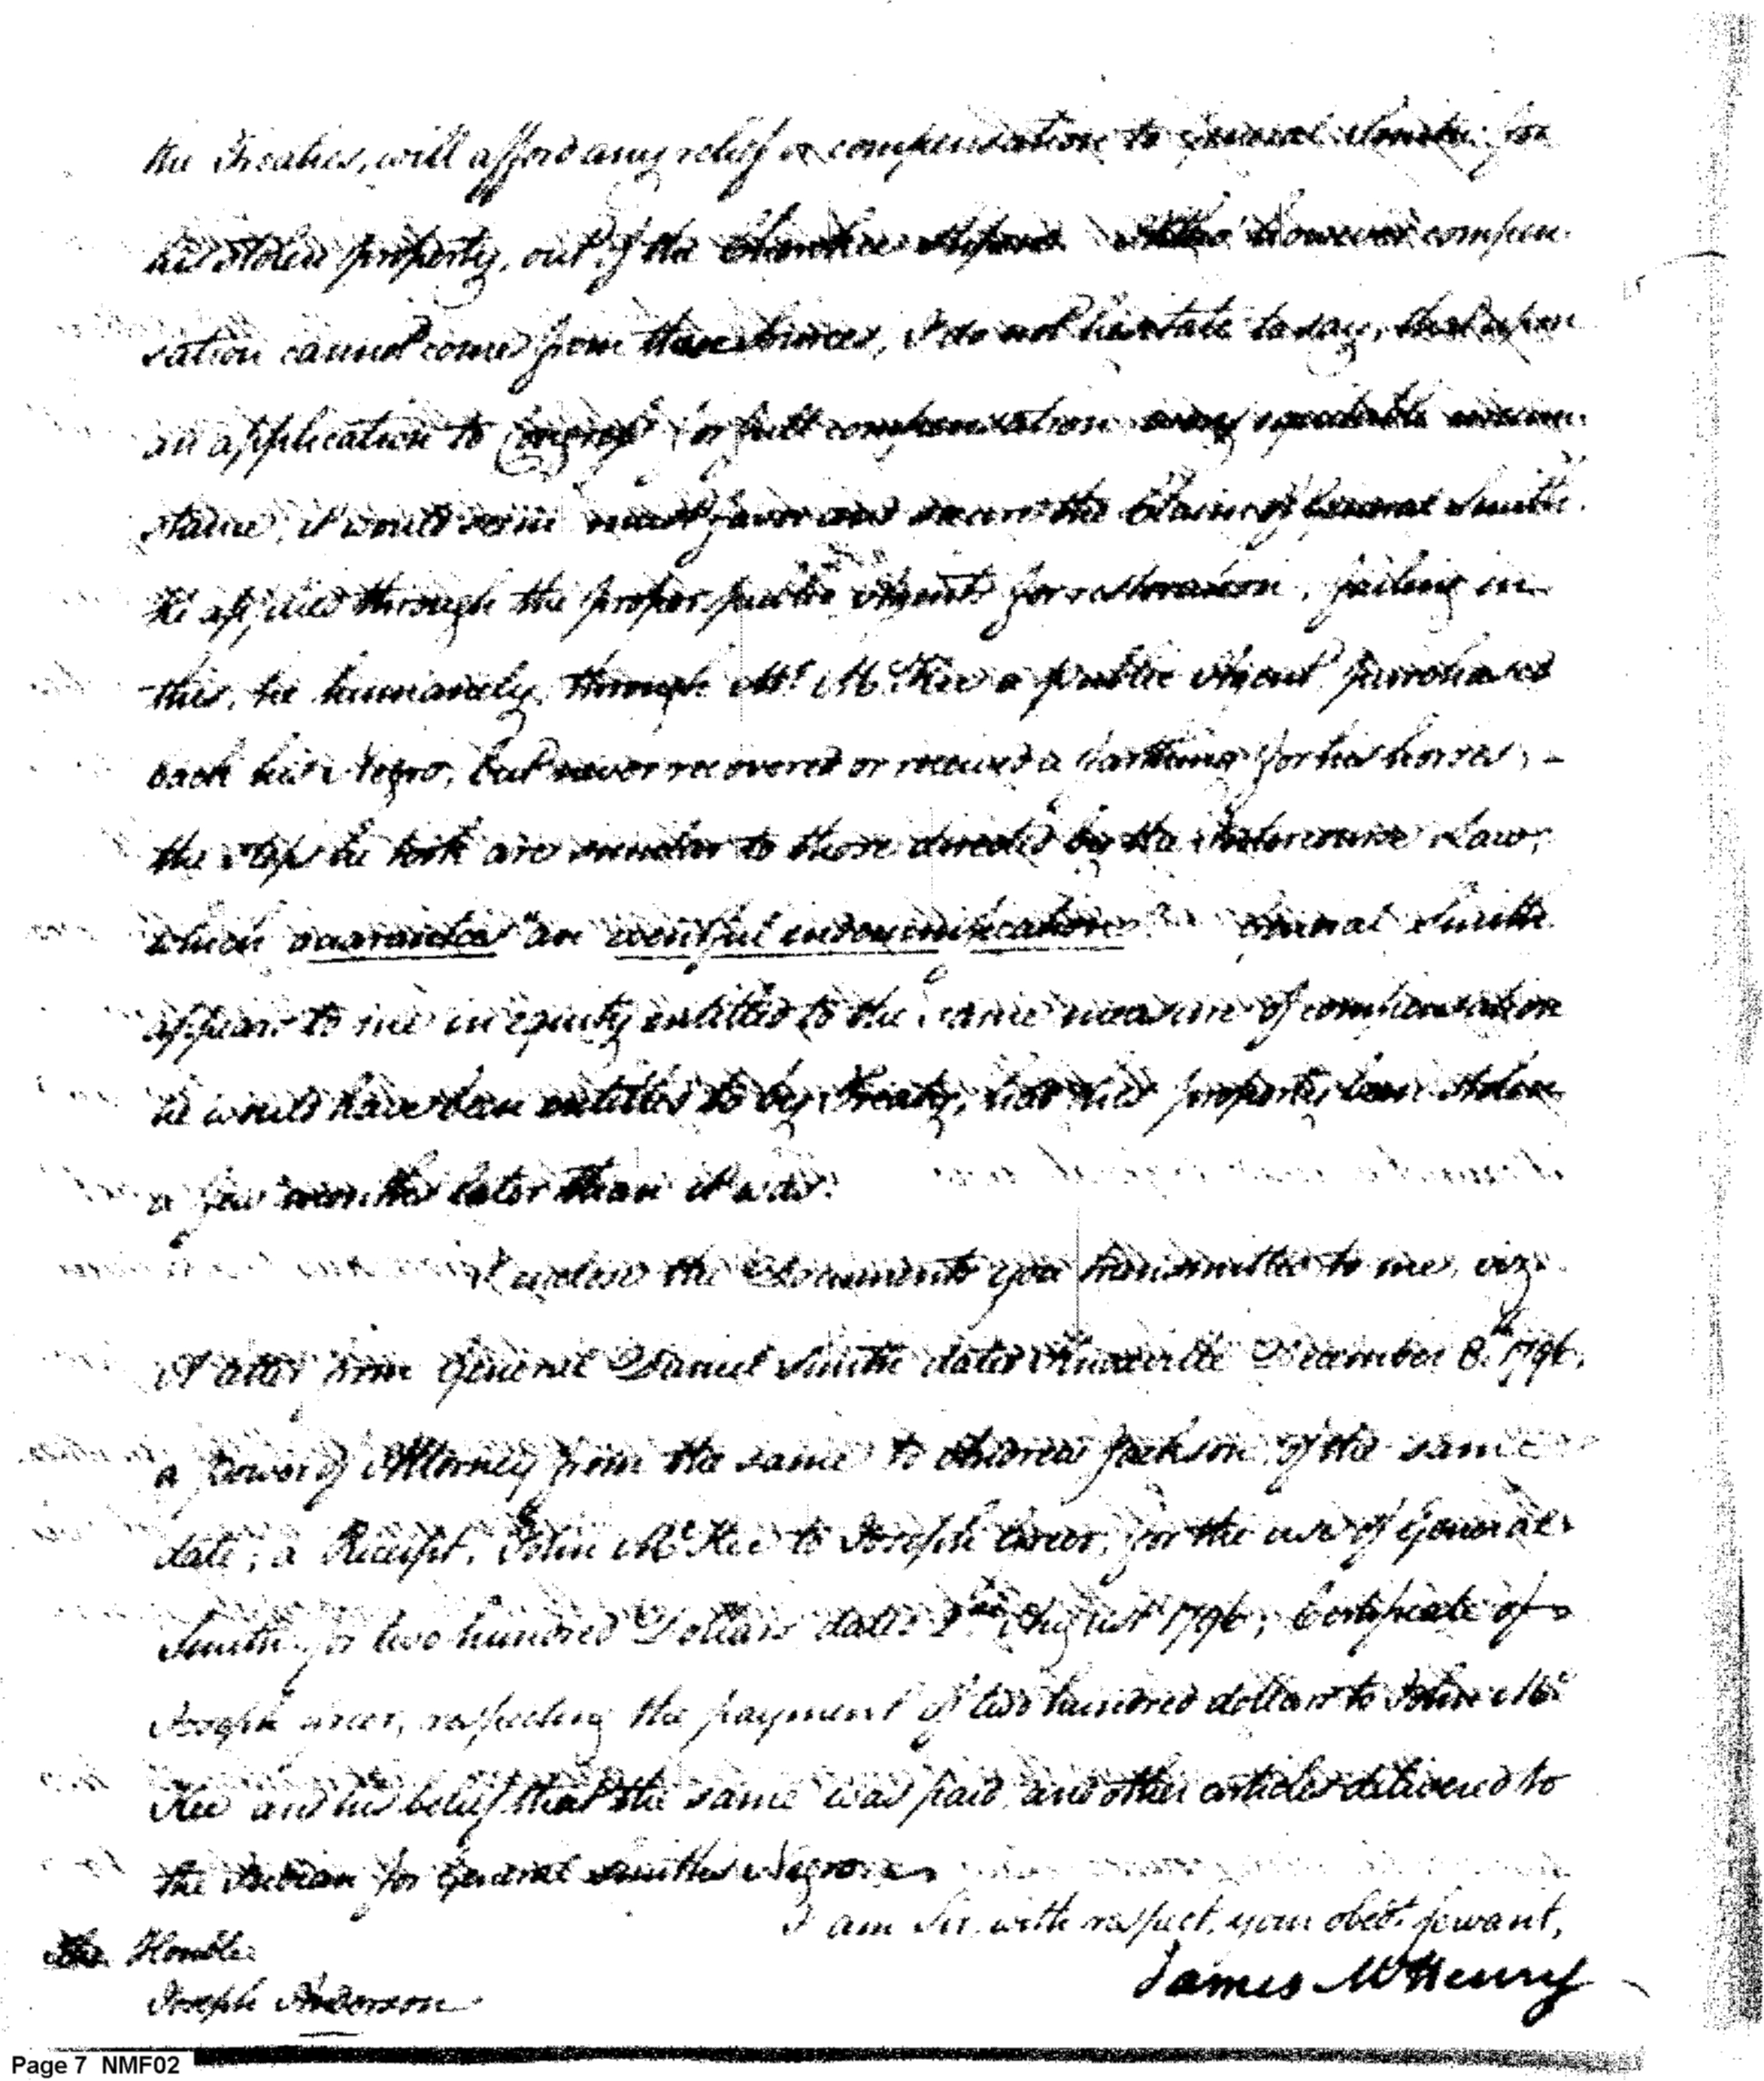 the Treaties, will afford any relief or compensation to General Smith for
his stolen property, out of the Cherokee Stipend. Altho' however compen-
sation cannot come from these sources, I do not hesitate to say, that upon
an application to Congress for full compensation every equitable circum-
stance, it would seem must favor and secure the Claim of General Smith.
He applied through the proper public Agents for restoration, failing in
this, he humanely, through Mr. McKee a public Agent purchased
back his Negro, but never recovered or received a farthing for his horses, -
the steps he took are similar to those directed by the Intercourse Law,
which guarantees "an eventful indemnification". General Smith
appears to me in equity entitled to the same measure of compensation
he would have been entitled to by Treaty, had his property been stolen
a few months later than it was.
I enclose the Documents you transmitted to me, viz.
A Letter from General Daniel Smith dated Knoxville December 8th 1796.
a Power of Attorney from the same to Andrew Jackson of the same
date; a Receipt, John McKee to Joseph Greer, for the use of General
Smith for two hundred Dollars dated August 1796; Certificate of
Joseph Greer, respecting the payment of two hundred dollars to John Mc
Kee and his belief that the same was paid, and other articles delivered to
the Indian for General Smiths Negro.
I am Sir, with respect, your obedt. servant,
James McHenry
The Honble.
Joseph Anderson
Page 7 NMF02